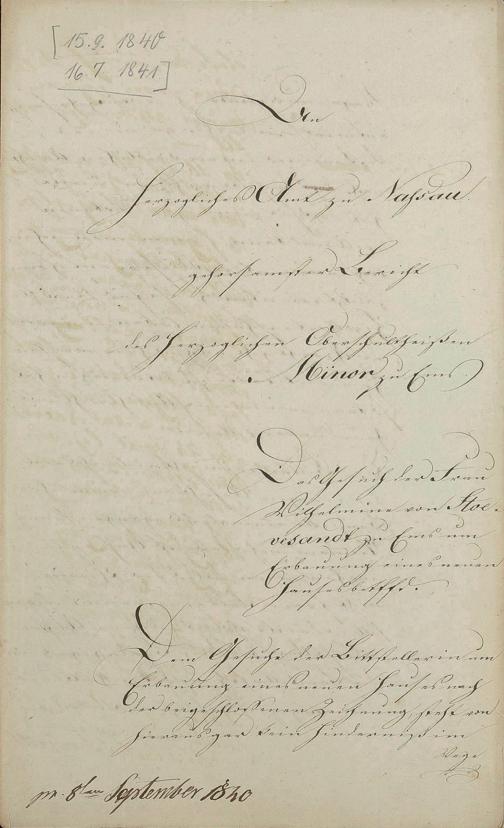 [15.9. 1840
16.7 1841]
An
Herzogliches Amt zu Nassau.
gehorsamster Bericht
des Herzoglichen Oberschultheißen
Minor zu Ems.
Das Gesuch der Frau
Wilhelmine von Stoe-
vesandt zu Ems um
Erbauung eines neuen
Hauses betffd.
Dem Gesuche der Bittstellerin um
Erbauung eines neuen Hauses nach
der beigeschlossenen Zeichnung, steht von
hieraus gar kein Hinderniß im
Wege
pr. 8ten September 1840